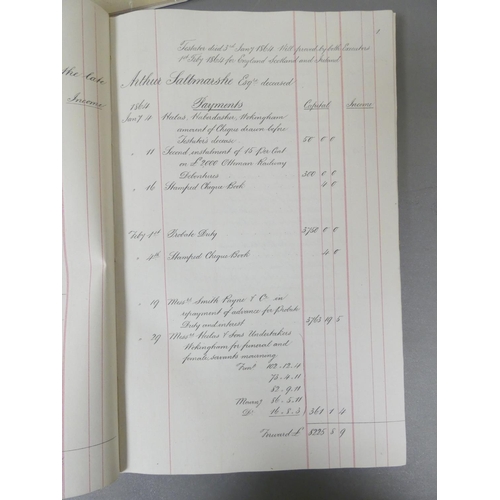 the late
Income
1
Testator died 3rd Jany 1864. Will proved by both Executors
1st Feby 1864 for England Scotland and Ireland
Arthur Saltmarshe Esqre deceased
1864 Payments Capital Income
Jany 4 Haberdasher, Wokingham
amount of Cheque drawn before
Testator's decease 50 0 0
" 11 Second instalment of 15 per Cent
on £2000 Ottoman Railway
Debentures 300 0 0
" 16 Stamped Cheque Book 4 0
Feby 1st Probate Duty 5750 0 0
" 4th Stamped Cheque Book 4 0
" 19 Messrs Smith Payne & Co in
repayment of advance for Probate
Duty and interest 5763 19 5
" 29 Messrs & Sons Undertakers
Wokingham for funeral and
female servants mourning
102-12-11
75-4-11
52-9-11
86-5-11
Do 16-5-3 361 1 4
Forward £ 5 9